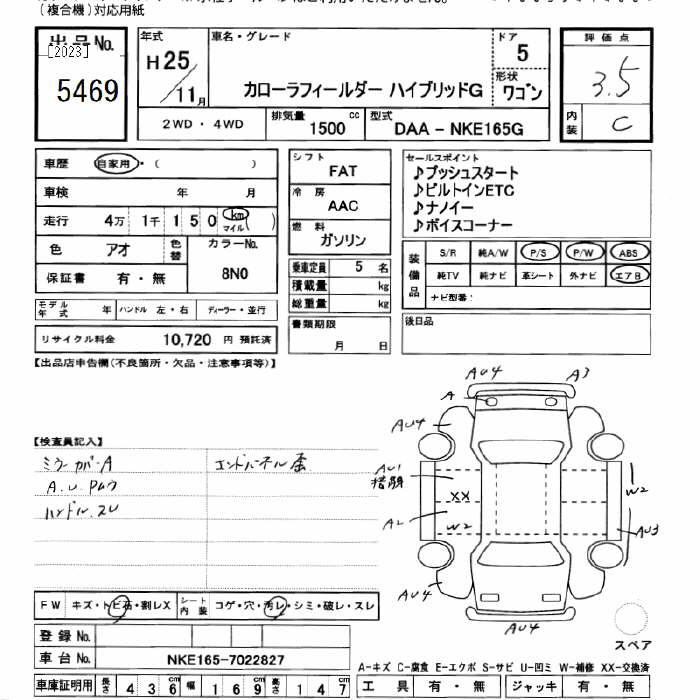 (複合機)対応用紙
出品No.
[2023]
5469
年式
H25/11月
車名・グレード
カローラフィールダー ハイブリッドG
ドア
5
形状
ワゴン
評価点
3.5
内装
C
2WD・4WD
排気量 1500 cc
型式 DAA-NKE165G
車歴 自家用・( )
車検 年 月
走行 4万 1千 150 km マイル ( )
色 アオ 色替
カラーNo.
8N0
保証書 有・無
モデル年式 年 ハンドル 左・右 ディーラー・並行
リサイクル料金 10,720 円 預託済
シフト
FAT
冷房
AAC
燃料
ガソリン
乗車定員 5 名
積載量 kg
総重量 kg
書類期限
月 日
セールスポイント
♪プッシュスタート
♪ビルトインETC
♪ナノイー
♪ボイスコーナー
装備品
S/R 純A/W P/S P/W ABS
純TV 純ナビ 革シート 外ナビ エアB
ナビ型番:
後日品
【出品店申告欄(不良箇所・欠品・注意事項等)】
【検査員記入】
ミラーカバーA
A.U P山ワ
ハンドル.スレ
エンドパネル歪
AU4
A3
A
AU4
AU1
XX
A2
W2
W2
AU3
AU4
AU4
FW キズ・トビ石・割レX
シート内装 コゲ・穴・汚レ・シミ・破レ・スレ
登録No.
車台No. NKE165-7022827
スペア
A-キズ C-腐食 E-エクボ S-サビ U-凹ミ W-補修 XX-交換済
車庫証明用 長さ 436 cm 幅 169 cm 高さ 147 cm
工具 有・無 ジャッキ 有・無